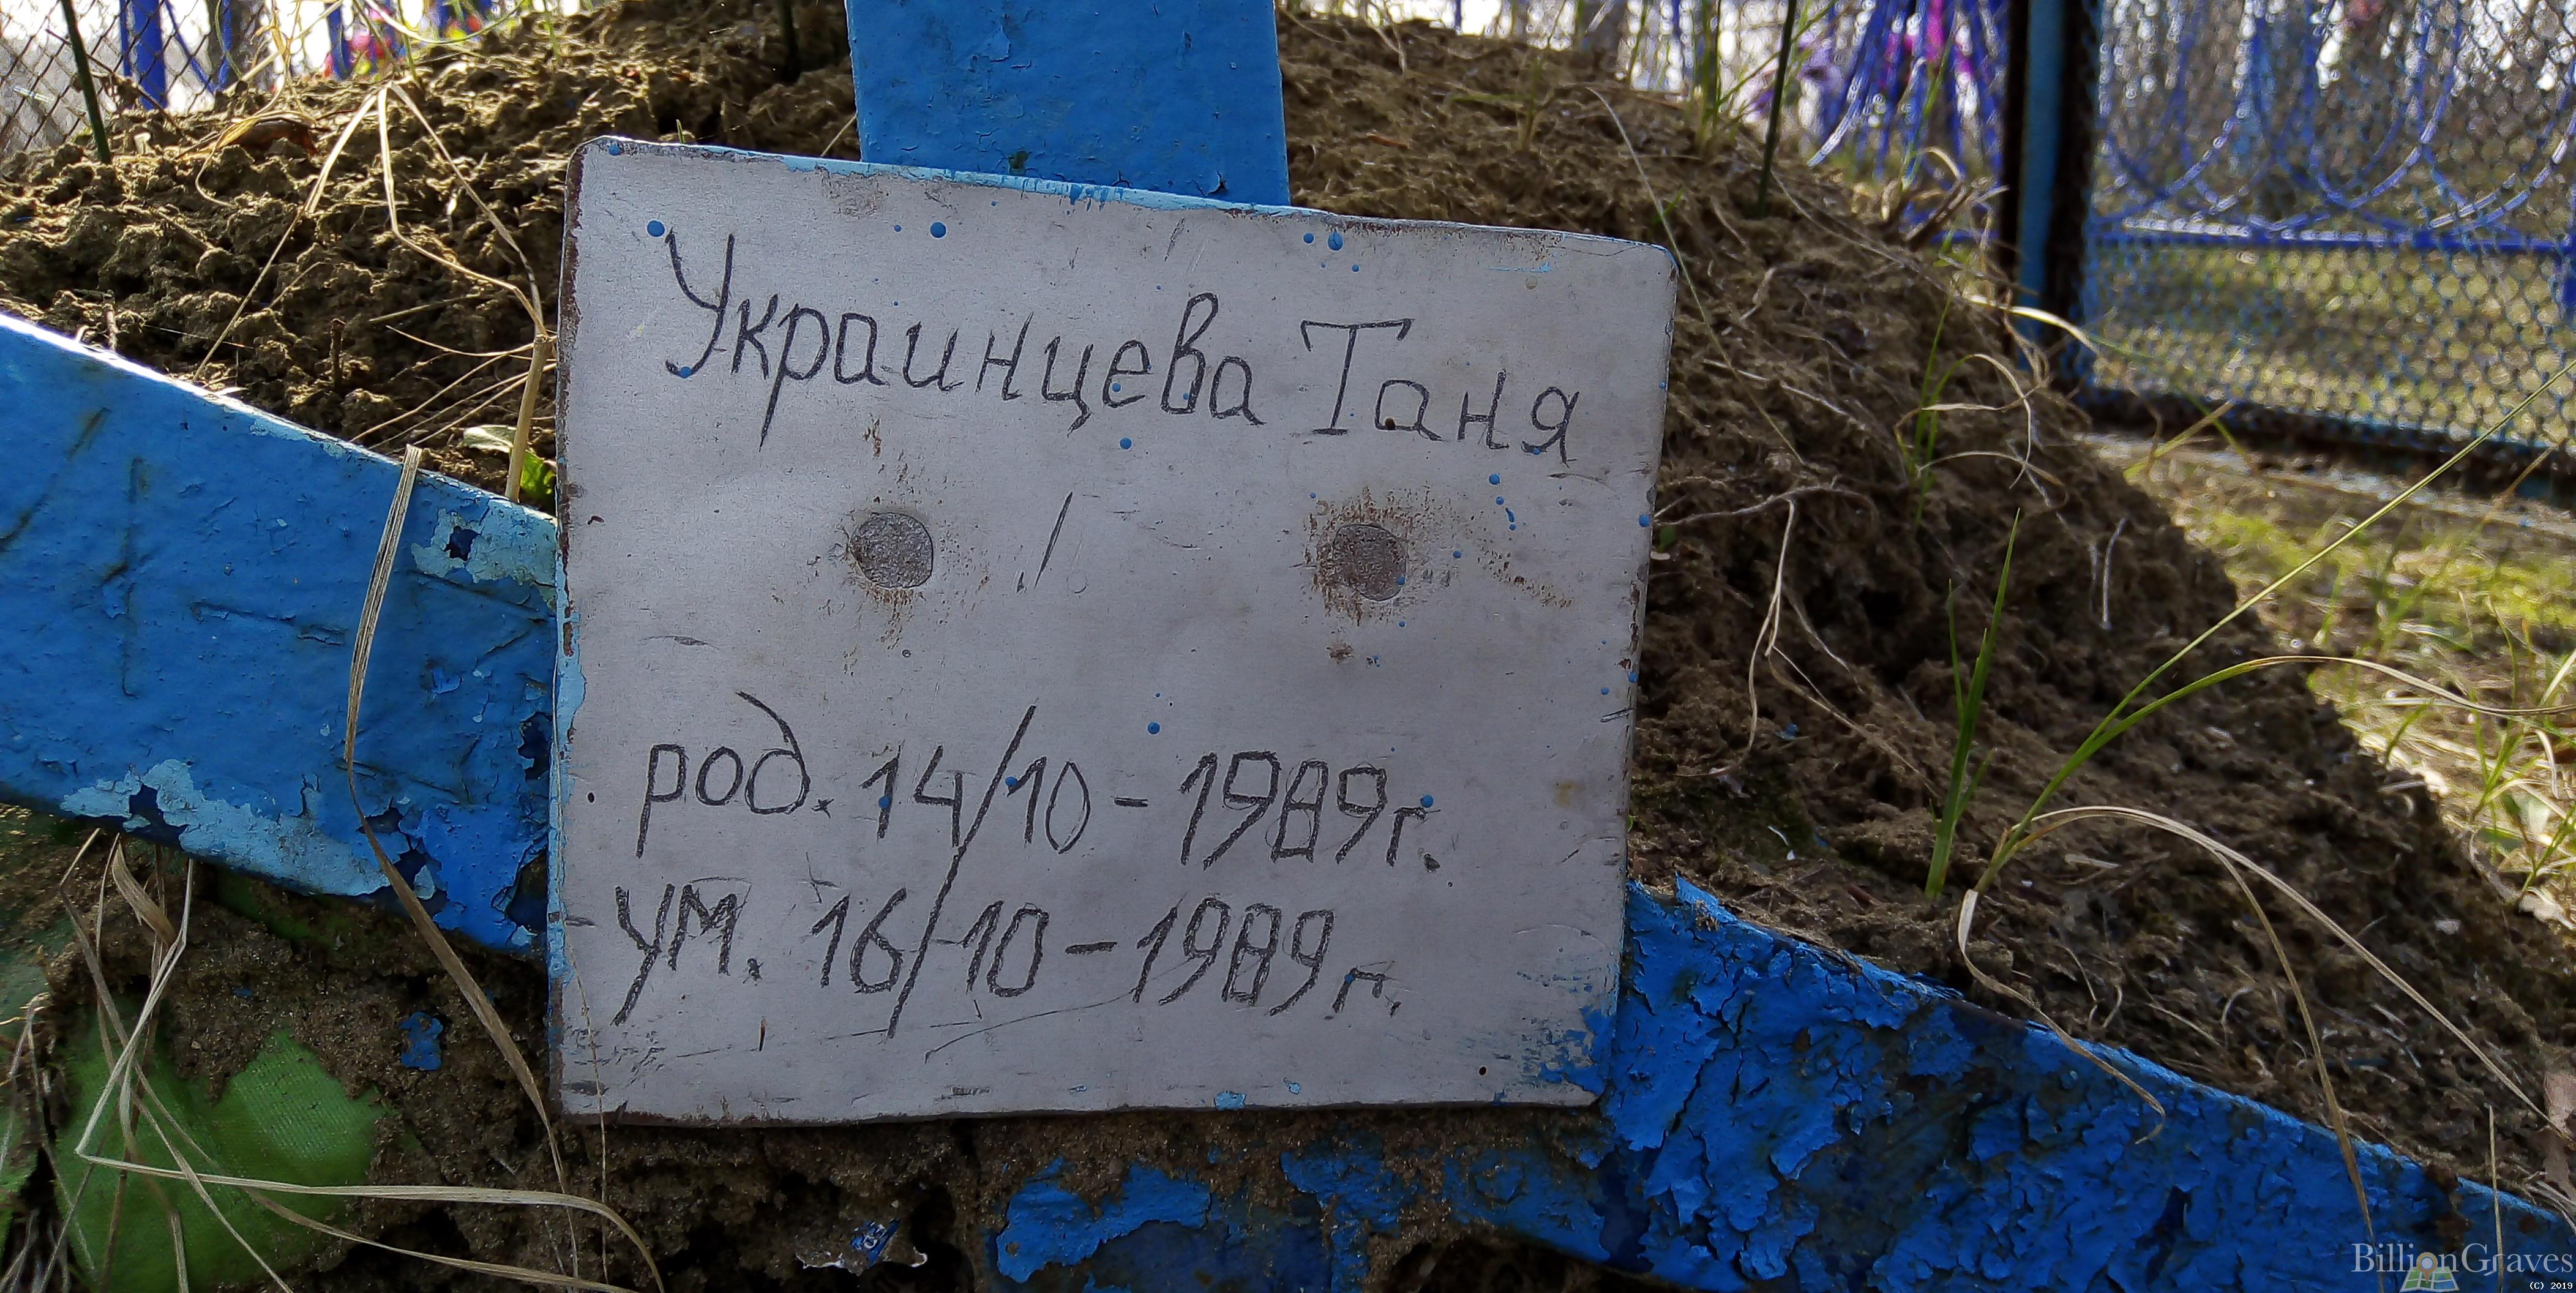 Украинцева Таня
род. 14/10-1989г.
ум. 16/10-1989г.
BillionGraves
(C) 2019